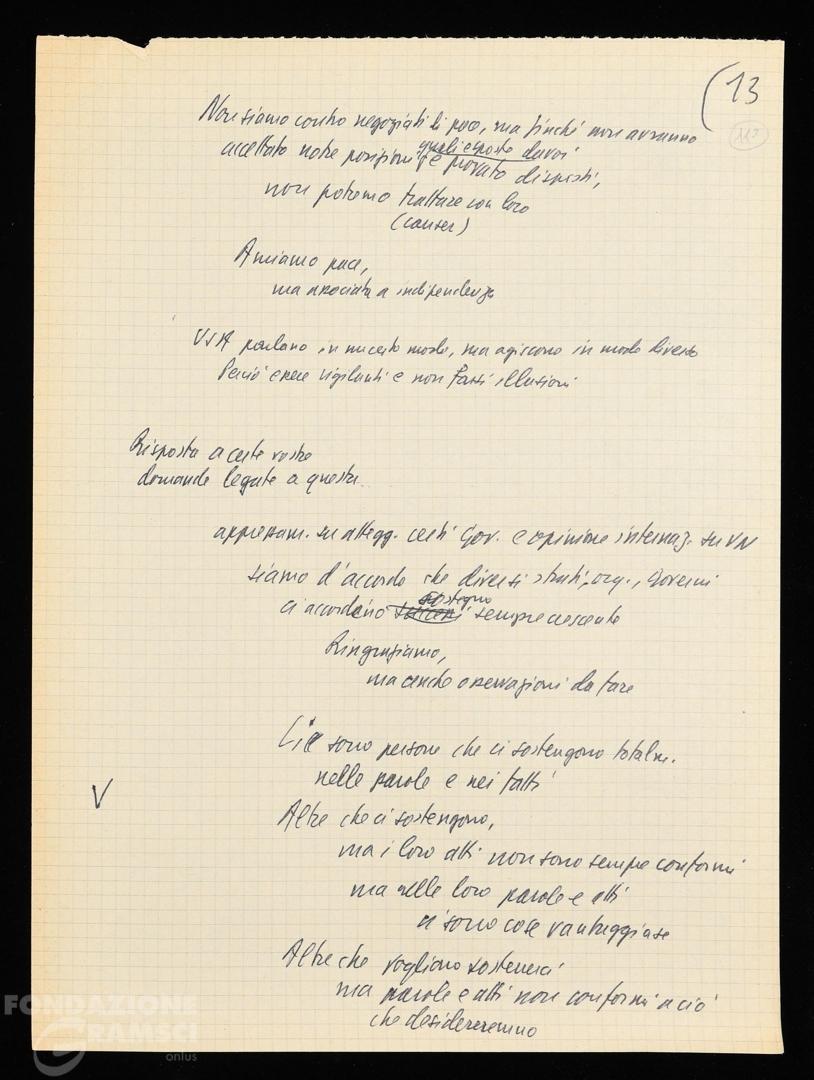 (13
113
Non siamo contro negoziati di pace, ma finché non avranno
accettato nostre posizioni quali esposte da voi
e provato disposti,
non potremo trattare con loro
(causer)
Amiamo pace,
ma associata a indipendenza
USA parlano in un certo modo, ma agiscono in modo diverso
Perciò essere vigilanti e non farsi illusioni
Risposta a certe vostre
domande legate a questa
apprezzam. su attegg. certi Gov. e opinione internaz. su VN
siamo d'accordo che diversi strati, org., governi
ci accordano sostegno sempre crescente
Ringraziamo,
ma anche osservazioni da fare
Ci sono persone che ci sostengono totalm.
nelle parole e nei fatti
V
Altre che ci sostengono,
ma i loro atti non sono sempre conformi
ma nelle loro parole e atti
ci sono cose vantaggiose
Altre che vogliono sostenerci
ma parole e atti non conformi a ciò
che desidereremmo
FONDAZIONE
GRAMSCI
onlus